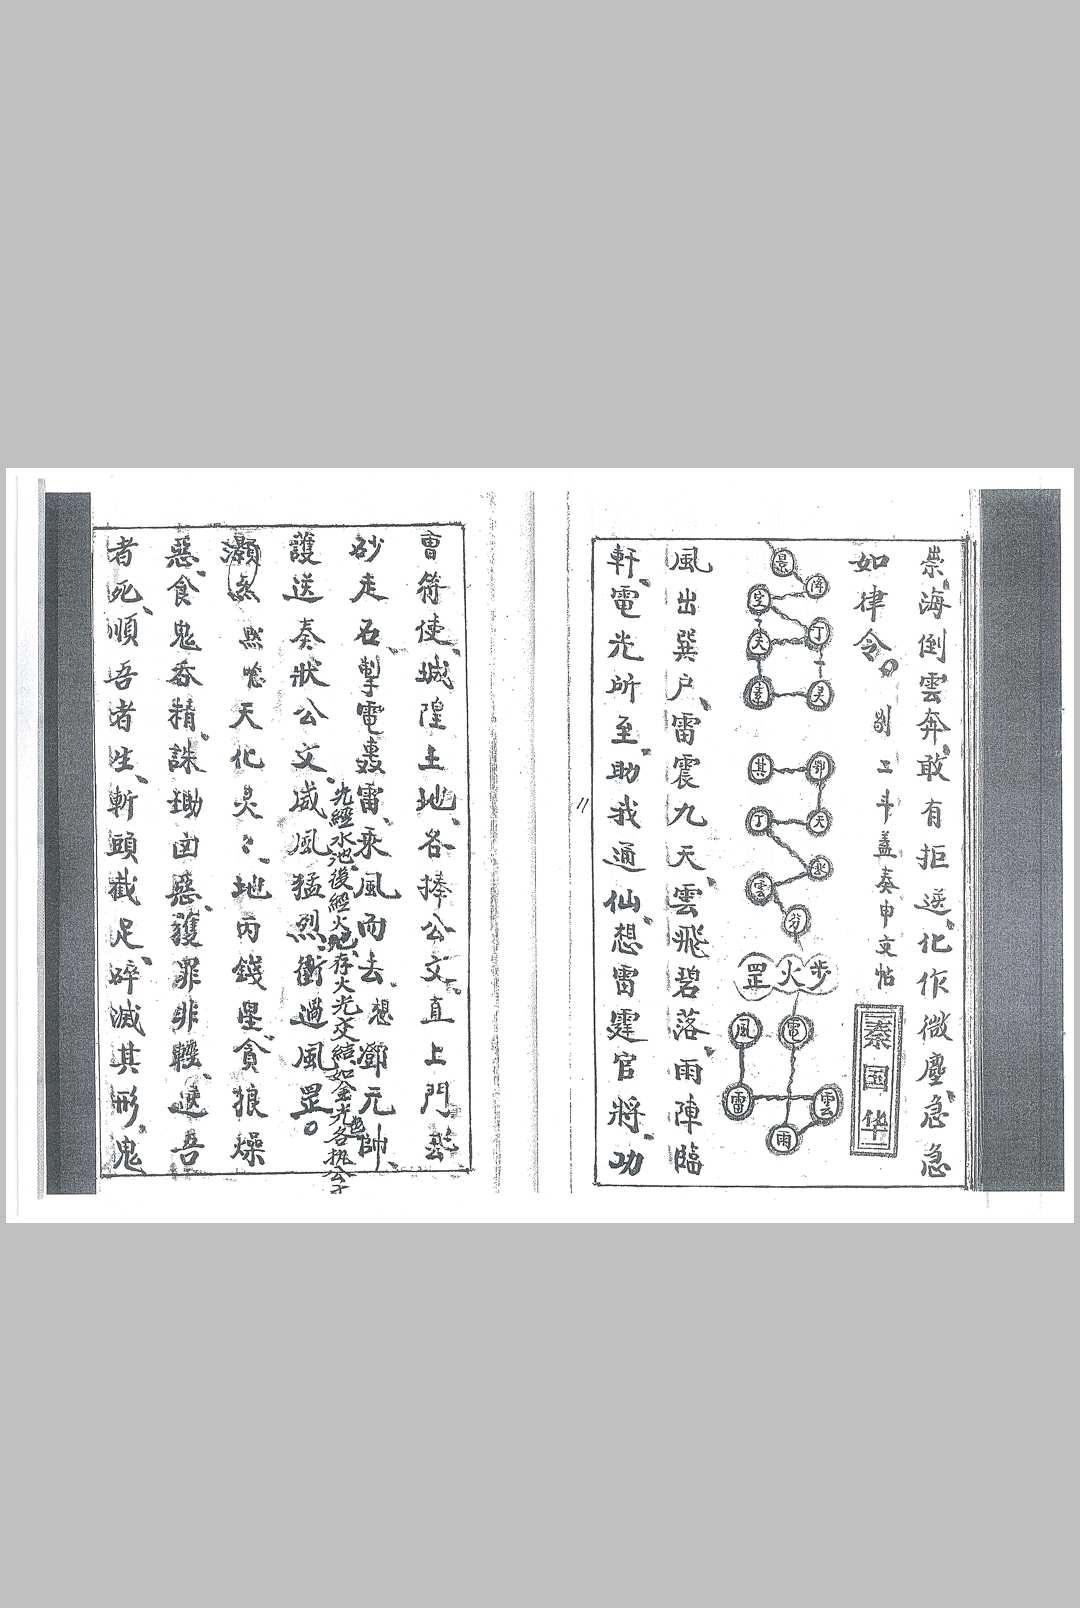 崇海倒雲奔敢有拒逆化作微塵急急
如律令。
斗蓋奏申文帖
秦国华
景
降
空
丁
天
灵
素
其
鄂
丁
天
雲
步火罡
風
電
雷
雲
雨
風出巽户雷震九天雲飛碧落雨陣臨
軒電光所至助我通仙想雷霆官將功
11
曹符使城隍土地各捧公文直上門
砂走石掣電轟雷乘風而去想鄧元帥
先經水池後經火池存火光交結如金光各執公
護送奏狀公文威風猛烈衝過風罡。
灝天化灵地丙錢星貪狼燥
惡食鬼吞精誅鋤凶惡獲罪非輕逆吾
者死順吾者生斬頭截足碎滅其形鬼